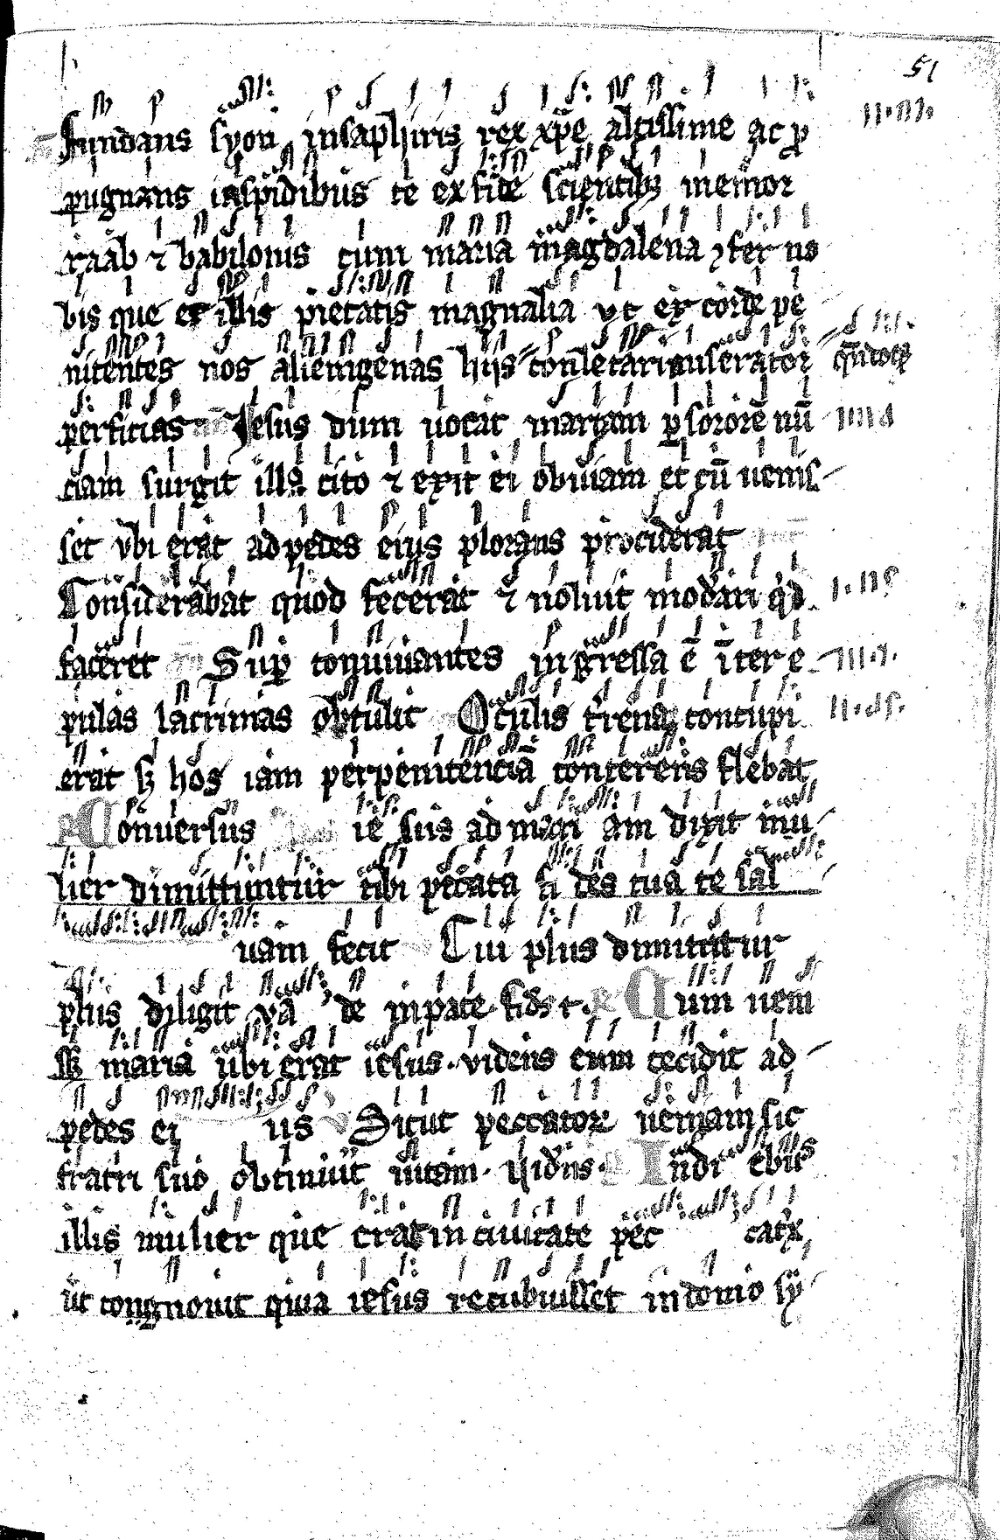 51
Fundans syon insaphiris rex xpe altissime ac p
pugnans iaspidibus te ex fide scientibꝫ memor
raab ⁊ babilonis cum maria magdalena ꝯfer no
bis que et illis pietatis magnalia ut ex corde pe
nitentes nos alienigenas hijs conletari miserator
perficias Iesus dum uocat martam p sororē nū
ciam surgit illa cito ⁊ exit ei obuiam et cū uenis
set vbi erat ad pedes eius plorans prociderat
Considerabat quod fecerat ⁊ noluit modari qd
faceret Sup conuiuantes ingressa ē īter e
pulas lacrimas obtulit Oculis trena concupi
erat sꝫ hos iam per penitenciā conterens flebat
Conuersus ie sus ad mari am dixit mu
lier dimittuntur tibi peccata fi des tua te sal
uam fecit Cui plus dimittitur
plus diligit vā de in pace
maria ubi erat iesus videns eum cecidit ad
pedes ei us Sicut peccator ueniam sic
fratri suo obtinuit uitam
illis mulier que erat in ciuitate pec catx
ut congnouit quia iesus recubuisset in domo sy